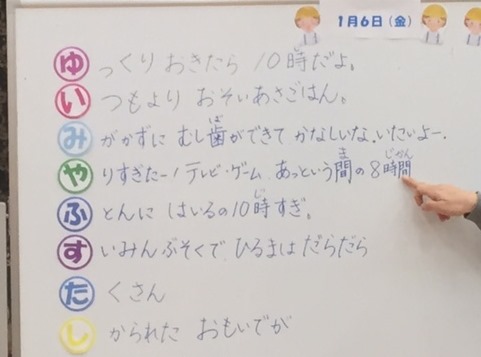 1月6日(金)
ゆっくり おきたら 10時だよ。
いつもより おそいあさごはん。
みがかずに むし歯ができて かなしいな、いたいよー。
やりすぎたー!テレビ・ゲーム、あっという間の8時間
ふとんに はいるの10時すぎ。
すいみんぶそくで ひるまは だらだら
たくさん
しかられた おもいでが